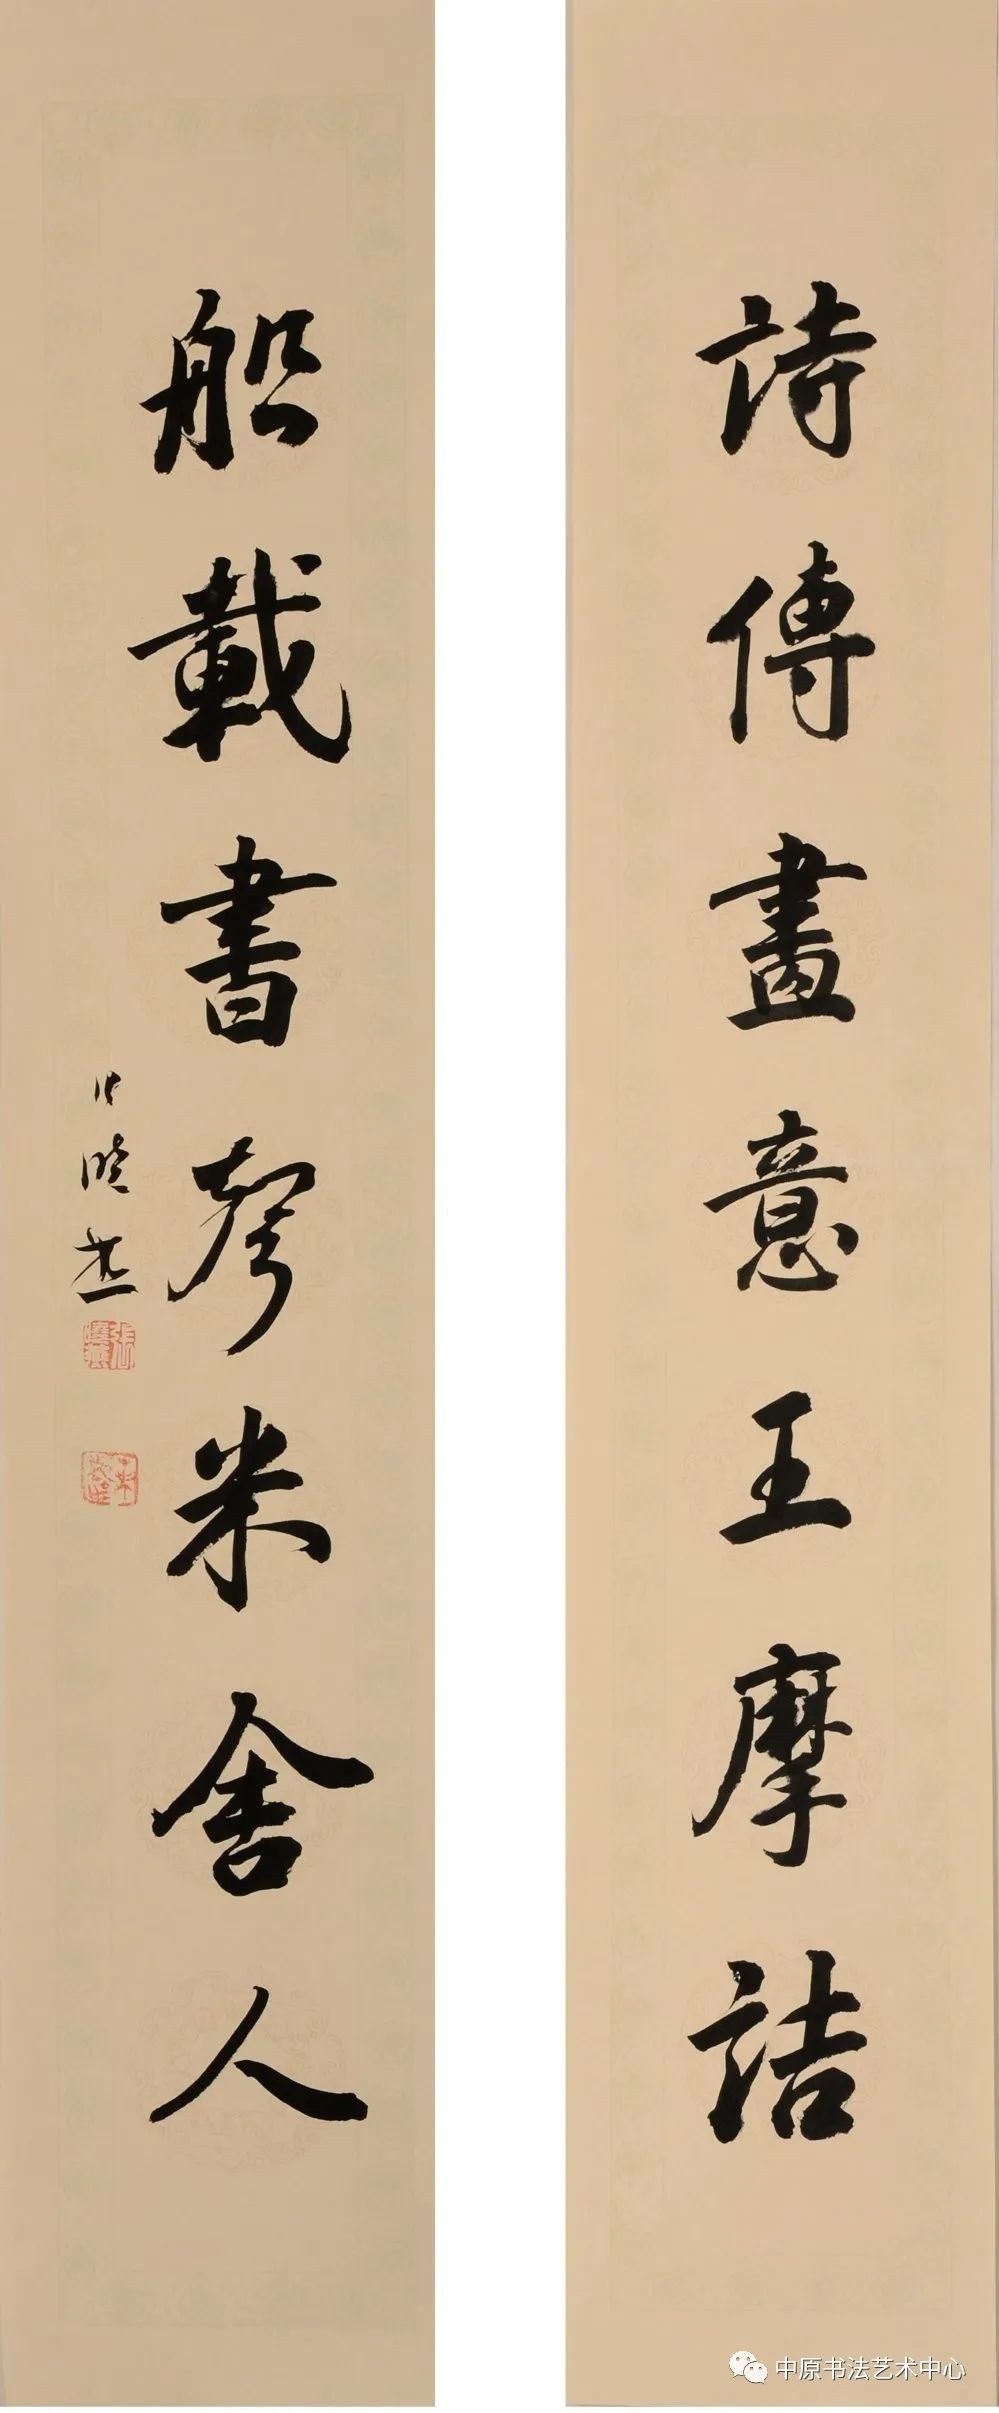 詩傳畫意王摩詰
船載書聲米舍人
中原书法艺术中心